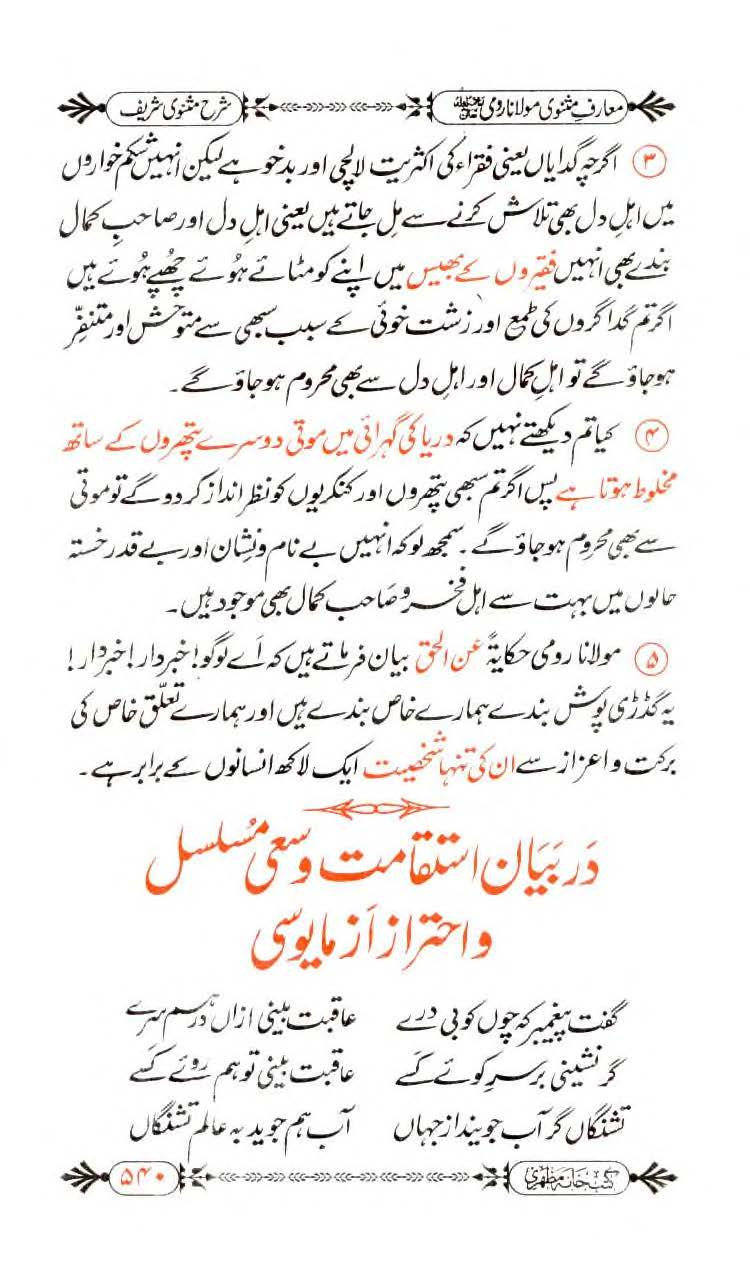 معارفِ مثنوی مولانا رومی ﷫ شرح مثنوی شریف
③ اگرچہ گدایاں یعنی فقراء کی اکثریت لالچی اور بدخو ہے لیکن انہیں شکم خواروں
میں اہلِ دل بھی تلاش کرنے سے مِل جاتے ہیں یعنی اہلِ دل اور صاحبِ کمال
بندے بھی انہیں فقیروں کے بھیس میں اپنے کو مٹائے ہُوئے چُھپے ہُوئے ہیں
اگر تم گداگروں کی طمع اور زشت خوئی کے سبب سبھی سے متوحش اور متنفّر
ہوجاؤ گے تو اہلِ کمال اور اہلِ دل سے بھی محروم ہوجاؤ گے۔
④ کیا تم دیکھتے نہیں کہ دریا کی گہرائی میں موتی دوسرے پتھروں کے ساتھ
مخلوط ہوتا ہے پس اگر تم سبھی پتھروں اور کنکریوں کو نظر انداز کردو گے تو موتی
سے بھی محروم ہوجاؤ گے۔ سمجھ لو کہ انہیں بے نام و نِشان اور بے قدر خستہ
حالوں میں بہت سے اہلِ فخر و صَاحب کمال بھی موجود ہیں۔
⑤ مولانا رومی حکایۃً عن الحق بیان فرماتے ہیں کہ اَے لوگو! خبردار! خبردار!
یہ گڈری پوش بندے ہمارے خاص بندے ہیں اور ہمارے تعلّق خاص کی
برکت و اعزاز سے ان کی تنہا شخصیت ایک لاکھ انسانوں کے برابر ہے۔
دَر بَیَان استقامت و سعی مُسلسل
و احتراز اَز مایوسی
گفت پیغمبر کہ چوں کوبی درے عاقبت بینی ازاں در ہم سَرے
گر نشینی بر سرِ کوئے کَسے عاقبت بینی تو ہم روئے کَسے
تشنگاں گر آب جویند از جہاں آب ہم جوید بہ عالم تشنگاں
کتب خانہ مظہری ۵۴۰